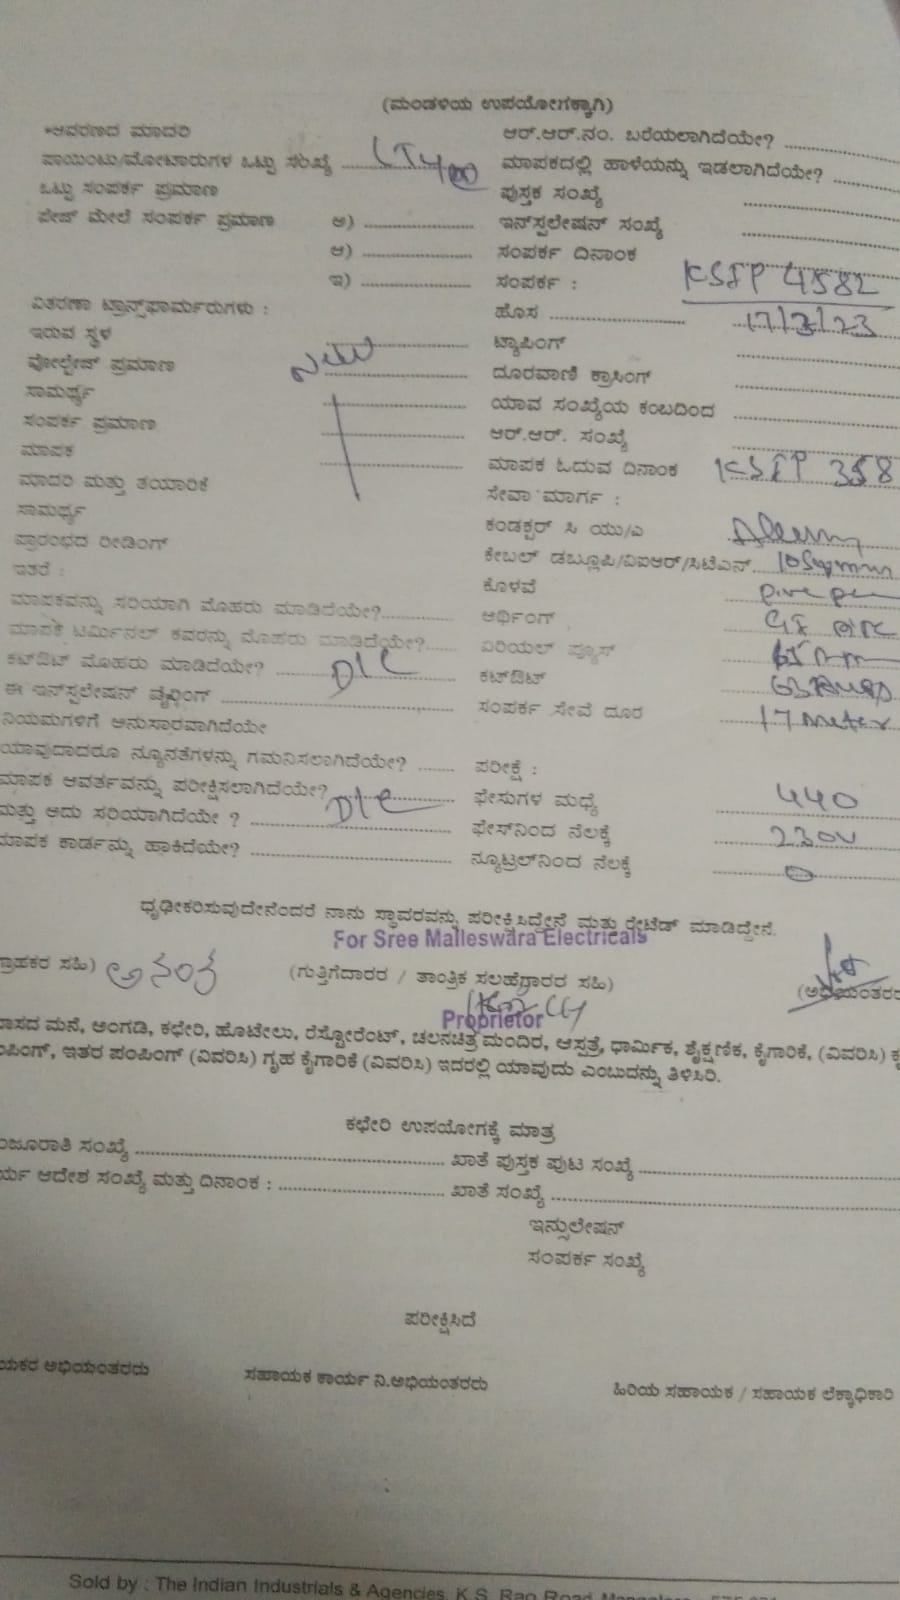 (ಮಂಡಳಿಯ ಉಪಯೋಗಕ್ಕಾಗಿ)
*ಆವರಣದ ಮಾದರಿ
ಪಾಯಿಂಟು/ಮೋಟಾರುಗಳ ಒಟ್ಟು ಸಂಖ್ಯೆ
ಒಟ್ಟು ಸಂಪರ್ಕ ಪ್ರಮಾಣ
ಪೇಜ್ ಮೇಲೆ ಸಂಪರ್ಕ ಪ್ರಮಾಣ ಅ)
ಆ)
ಇ)
ವಿತರಣಾ ಟ್ರಾನ್ಸ್‌ಫಾರ್ಮರುಗಳು :
ಇರುವ ಸ್ಥಳ
ವೋಲ್ಟೇಜ್ ಪ್ರಮಾಣ
ಸಾಮರ್ಥ್ಯ
ಸಂಪರ್ಕ ಪ್ರಮಾಣ
ಮಾಪಕ
ಮಾದರಿ ಮತ್ತು ತಯಾರಿಕೆ
ಸಾಮರ್ಥ್ಯ
ಪ್ರಾರಂಭದ ರೀಡಿಂಗ್
ಇತರೆ :
ಮಾಪಕವನ್ನು ಸರಿಯಾಗಿ ಮೊಹರು ಮಾಡಿದೆಯೇ?
ಮಾಪಕ ಟರ್ಮಿನಲ್ ಕವರನ್ನು ಮೊಹರು ಮಾಡಿದೆಯೇ?
ಕಟ್‌ಔಟ್ ಮೊಹರು ಮಾಡಿದೆಯೇ?
ಈ ಇನ್‌ಸ್ಟಲೇಷನ್ ವೈರಿಂಗ್
ನಿಯಮಗಳಿಗೆ ಅನುಸಾರವಾಗಿದೆಯೇ
ಯಾವುದಾದರೂ ನ್ಯೂನತೆಗಳನ್ನು ಗಮನಿಸಲಾಗಿದೆಯೇ?
ಮಾಪಕ ಆವರ್ತವನ್ನು ಪರೀಕ್ಷಿಸಲಾಗಿದೆಯೇ?
ಮತ್ತು ಅದು ಸರಿಯಾಗಿದೆಯೇ ?
ಮಾಪಕ ಕಾರ್ಡನ್ನು ಹಾಕಿದೆಯೇ?
ಆರ್.ಆರ್.ನಂ. ಬರೆಯಲಾಗಿದೆಯೇ?
ಮಾಪಕದಲ್ಲಿ ಹಾಳೆಯನ್ನು ಇಡಲಾಗಿದೆಯೇ?
ಪುಸ್ತಕ ಸಂಖ್ಯೆ
ಇನ್‌ಸ್ಪಲೇಷನ್ ಸಂಖ್ಯೆ
ಸಂಪರ್ಕ ದಿನಾಂಕ
ಸಂಪರ್ಕ : KSIP 4582
ಹೊಸ
ಟ್ಯಾಪಿಂಗ್
ದೂರವಾಣಿ ಕ್ರಾಸಿಂಗ್
ಯಾವ ಸಂಖ್ಯೆಯ ಕಂಬದಿಂದ
ಆರ್.ಆರ್. ಸಂಖ್ಯೆ
ಮಾಪಕ ಓದುವ ದಿನಾಂಕ KSIP 358
ಸೇವಾ ಮಾರ್ಗ :
ಕಂಡಕ್ಟರ್ ಸಿ ಯು/ಎ
ಕೇಬಲ್ ಡಬ್ಲೂಪಿ/ವಿಐಆರ್/ಸಿಟಿಎಸ್ 10Sqmm
ಕೊಳವೆ
ಆರ್ಥಿಂಗ್
ಏರಿಯಲ್ ಫ್ಯೂಸ್
ಕಟ್‌ಔಟ್
ಸಂಪರ್ಕ ಸೇವೆ ದೂರ 17 meter
ಪರೀಕ್ಷೆ :
ಫೇಸುಗಳ ಮಧ್ಯೆ 440
ಫೇಸ್‌ನಿಂದ ನೆಲಕ್ಕೆ 230V
ನ್ಯೂಟ್ರಲ್‌ನಿಂದ ನೆಲಕ್ಕೆ 0
ಧೃಢೀಕರಿಸುವುದೇನೆಂದರೆ ನಾನು ಸ್ಥಾವರವನ್ನು ಪರೀಕ್ಷಿಸಿದ್ದೇನೆ ಮತ್ತು ರೇಟೆಡ್ ಮಾಡಿದ್ದೇನೆ.
For Sree Malleswara Electricals
ಗ್ರಾಹಕರ ಸಹಿ) ಅನಂತ (ಗುತ್ತಿಗೆದಾರರ / ತಾಂತ್ರಿಕ ಸಲಹೆಗಾರರ ಸಹಿ) (ಅಭಿಯಂತರರ
Proprietor
ವಾಸದ ಮನೆ, ಅಂಗಡಿ, ಕಛೇರಿ, ಹೊಟೇಲು, ರೆಸ್ಟೋರೆಂಟ್, ಚಲನಚಿತ್ರ ಮಂದಿರ, ಆಸ್ಪತ್ರೆ, ಧಾರ್ಮಿಕ, ಶೈಕ್ಷಣಿಕ, ಕೈಗಾರಿಕೆ, (ವಿವರಿಸಿ)
ಂಪಿಂಗ್, ಇತರ ಪಂಪಿಂಗ್ (ವಿವರಿಸಿ) ಗೃಹ ಕೈಗಾರಿಕೆ (ವಿವರಿಸಿ) ಇದರಲ್ಲಿ ಯಾವುದು ಎಂಬುದನ್ನು ತಿಳಿಸಿರಿ.
ಕಛೇರಿ ಉಪಯೋಗಕ್ಕೆ ಮಾತ್ರ
ಂಜೂರಾತಿ ಸಂಖ್ಯೆ ಖಾತೆ ಪುಸ್ತಕ ಪುಟ ಸಂಖ್ಯೆ
ರ್ಯ ಆದೇಶ ಸಂಖ್ಯೆ ಮತ್ತು ದಿನಾಂಕ : ಖಾತೆ ಸಂಖ್ಯೆ
ಇನ್ಸುಲೇಷನ್
ಸಂಪರ್ಕ ಸಂಖ್ಯೆ
ಪರೀಕ್ಷಿಸಿದೆ
ಯಕರ ಅಭಿಯಂತರರು ಸಹಾಯಕ ಕಾರ್ಯ ನಿ.ಅಭಿಯಂತರರು ಹಿರಿಯ ಸಹಾಯಕ / ಸಹಾಯಕ ಲೆಕ್ಕಾಧಿಕಾರಿ
Sold by : The Indian Industrials & Agencies, K.S. Rao Road,